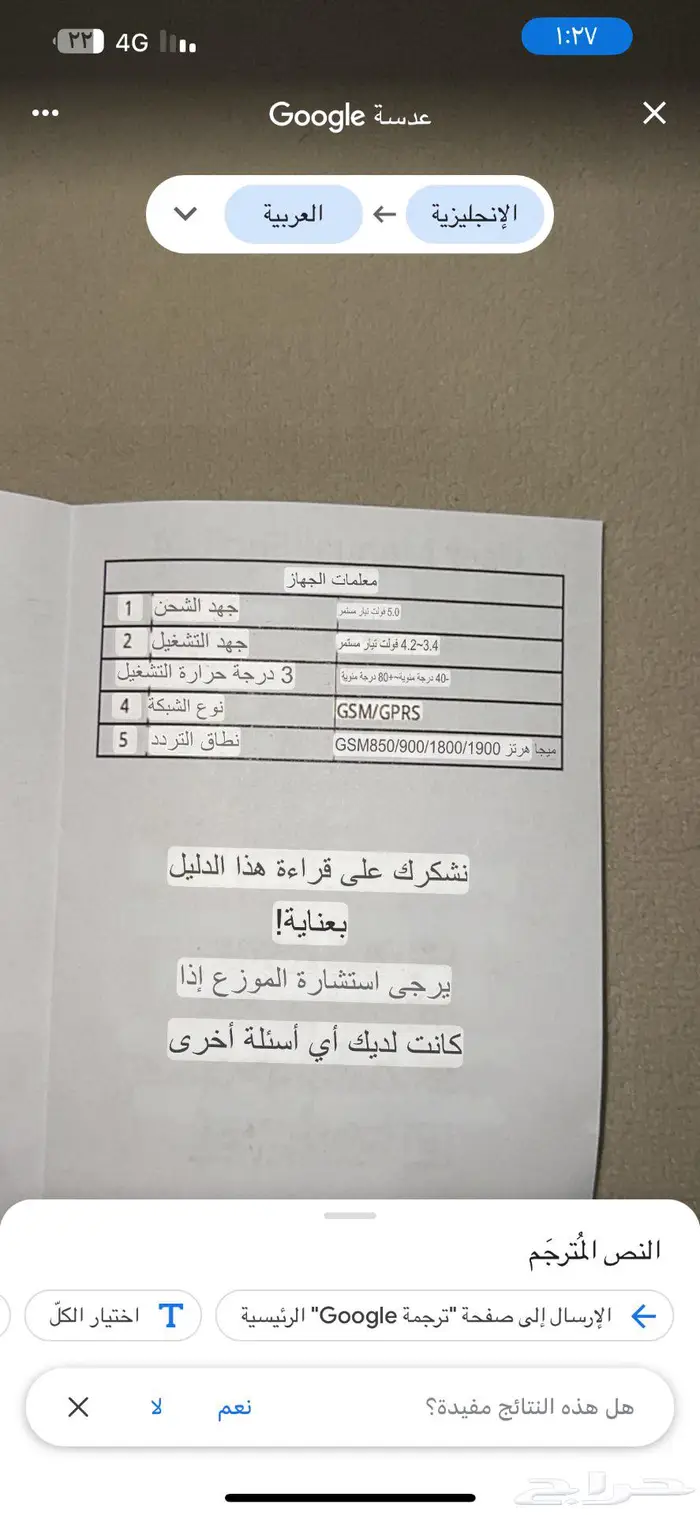 ١:٢٧
4G
٢٢
عدسة Google
الإنجليزية
العربية
معلمات الجهاز
1 جهد الشحن 5.0 فولت تيار مستمر
2 جهد التشغيل 3.4~4.2 فولت تيار مستمر
3 درجة حرارة التشغيل -40 درجة مئوية~+80 درجة مئوية
4 نوع الشبكة GSM/GPRS
5 نطاق التردد GSM850/900/1800/1900 ميجا هرتز
نشكرك على قراءة هذا الدليل
بعناية!
يرجى استشارة الموزع إذا
كانت لديك أي أسئلة أخرى
النص المُترجَم
الإرسال إلى صفحة "ترجمة Google" الرئيسية
اختيار الكلّ
هل هذه النتائج مفيدة؟
نعم
لا
حراج